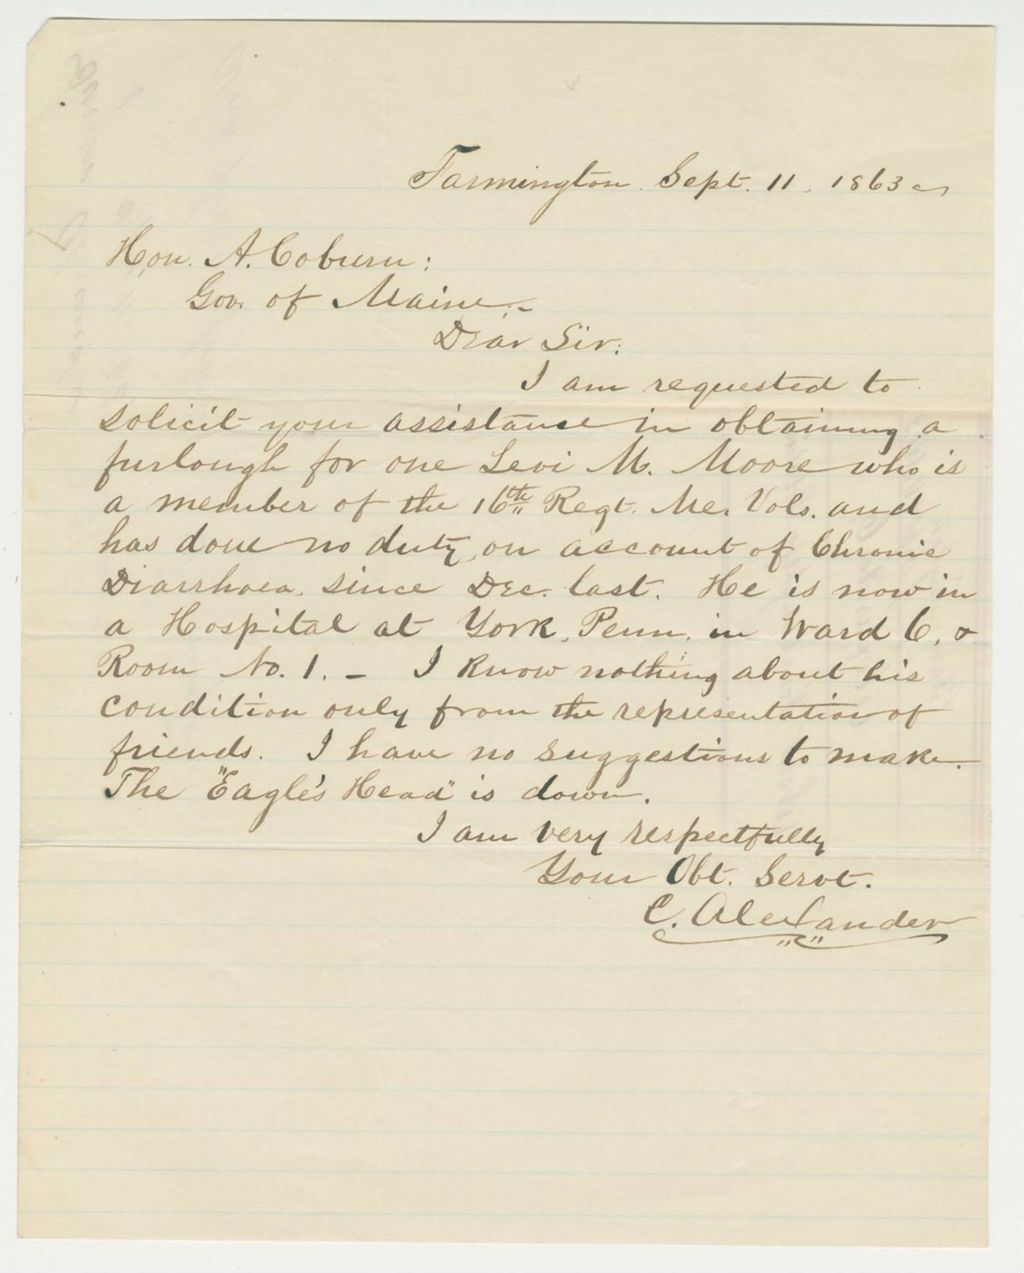 Farmington Sept. 11. 1863
Hon. A. Coburn:
Gov. of Maine,-
Dear Sir:
I am requested to
solicit your assistance in obtaining a
furlough for one Levi M. Moore who is
a member of the 16th Regt. Me. Vols. and
has done no duty, on account of Chronic
Diarrhoea, since Dec. last. He is now in
a Hospital at York, Penn. in Ward 6, &
Room No. 1. - I know nothing about his
condition only from the representation of
friends. I have no suggestions to make.
The "Eagle's Head" is down.
I am very respectfully
Your Obt. Servt.
C. Alexander